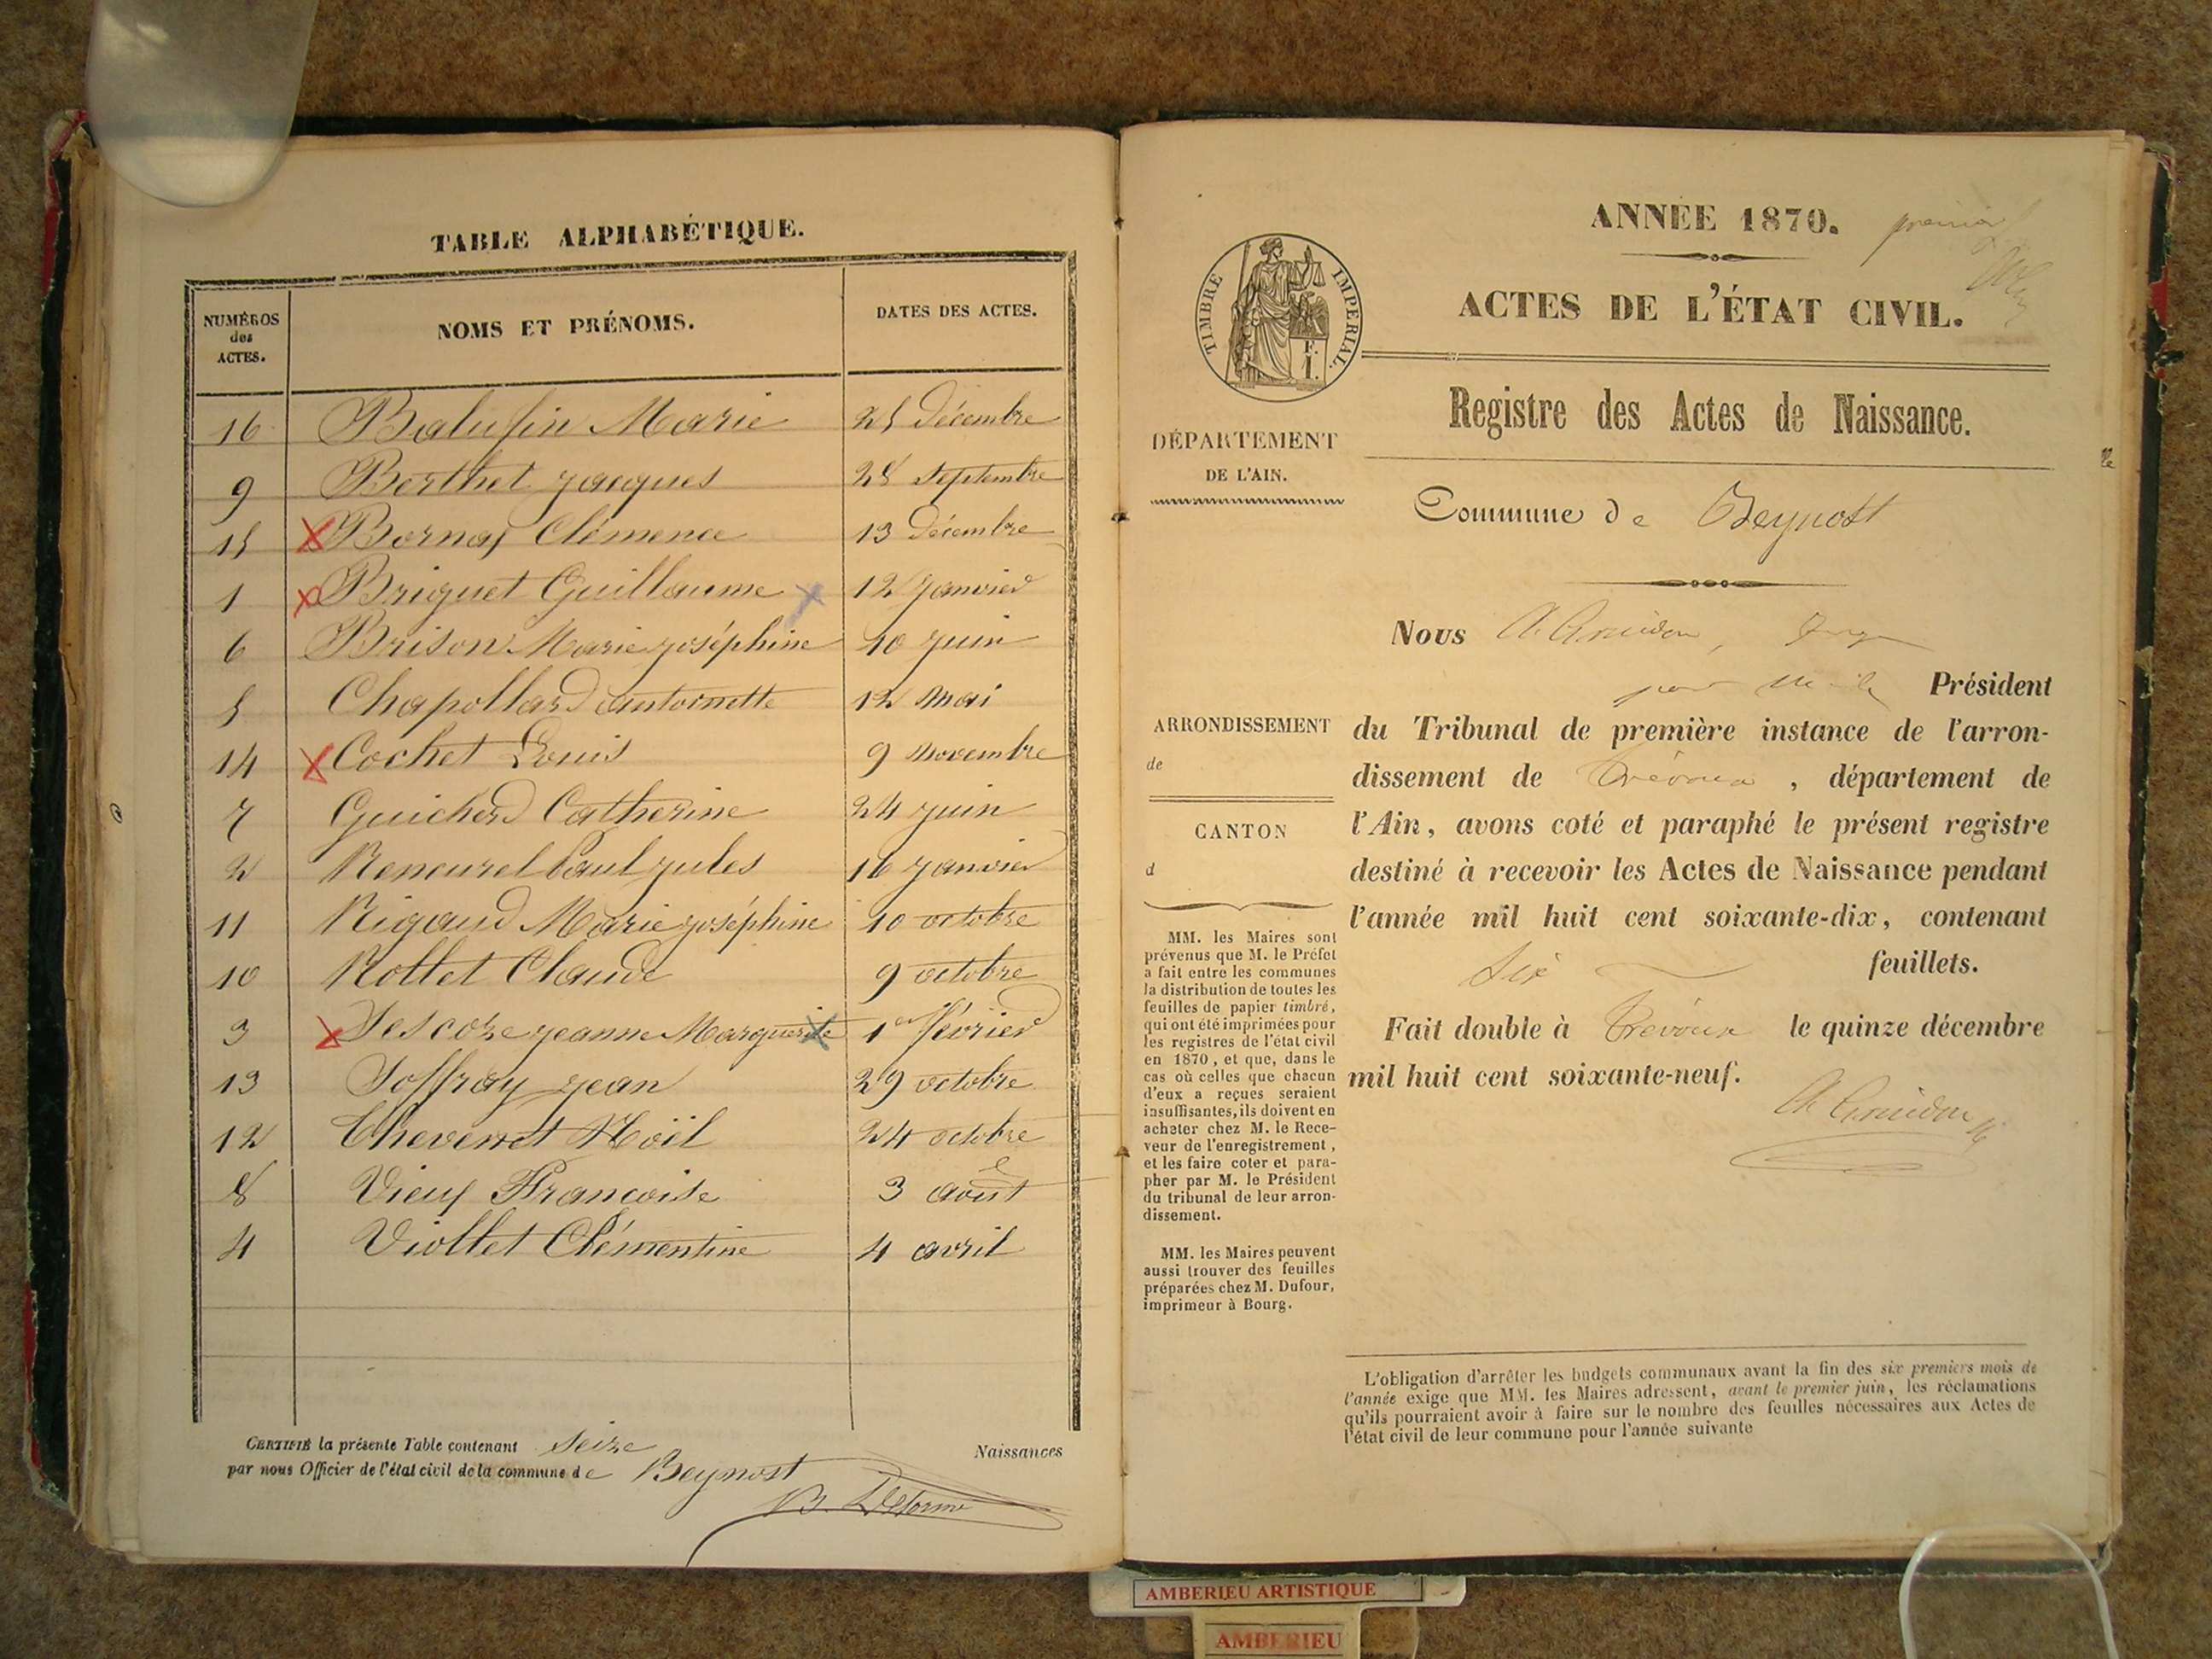 TABLE ALPHABÉTIQUE.
NUMÉROS des ACTES.
NOMS ET PRÉNOMS.
DATES DES ACTES.
16 Balufin Marie 25 décembre
9 Berthet jacques 28 septembre
15 Bornay Clémence 13 décembre
1 Briguet Guillaume 12 janvier
6 Brison Marie joséphine 10 juin
5 Chapollard antoinette 12 mai
14 Cochet Louis 9 novembre
7 Guicherd Catherine 24 juin
2 Rencurel Paul jules 16 janvier
11 Rigaud Marie joséphine 10 octobre
10 Rollet Claude 9 octobre
3 Sescoze jeanne Marguerite 1er février
13 Soffray jean 29 octobre
12 Thevenet Noël 24 octobre
8 Vieux Françoise 3 août
4 Viollet Clémentine 4 avril
CERTIFIÉ la présente Table contenant seize Naissances
par nous Officier de l'état civil de la commune de Beynost
B. Delorme
ANNÉE 1870.
premier
ACTES DE L'ÉTAT CIVIL.
TIMBRE IMPERIAL.
F.
1.
Registre des Actes de Naissance.
DÉPARTEMENT
DE L'AIN.
Commune de Beynost
Nous
Président
ARRONDISSEMENT
de
CANTON
d
du Tribunal de première instance de l'arron-
dissement de Trévoux, département de
l'Ain, avons coté et paraphé le présent registre
destiné à recevoir les Actes de Naissance pendant
l'année mil huit cent soixante-dix, contenant
six feuillets.
Fait double à Trévoux le quinze décembre
mil huit cent soixante-neuf.
MM. les Maires sont
prévenus que M. le Préfet
a fait entre les communes
la distribution de toutes les
feuilles de papier timbré,
qui ont été imprimées pour
les registres de l'état civil
en 1870, et que, dans le
cas où celles que chacun
d'eux a reçues seraient
insuffisantes, ils doivent en
acheter chez M. le Rece-
veur de l'enregistrement,
et les faire coter et para-
pher par M. le Président
du tribunal de leur arron-
dissement.
MM. les Maires peuvent
aussi trouver des feuilles
préparées chez M. Dufour,
imprimeur à Bourg.
L'obligation d'arrêter les budgets communaux avant la fin des six premiers mois de
l'année exige que MM. les Maires adressent, avant le premier juin, les réclamations
qu'ils pourraient avoir à faire sur le nombre des feuilles nécessaires aux Actes de
l'état civil de leur commune pour l'année suivante
AMBERIEU ARTISTIQUE
AMBERIEU